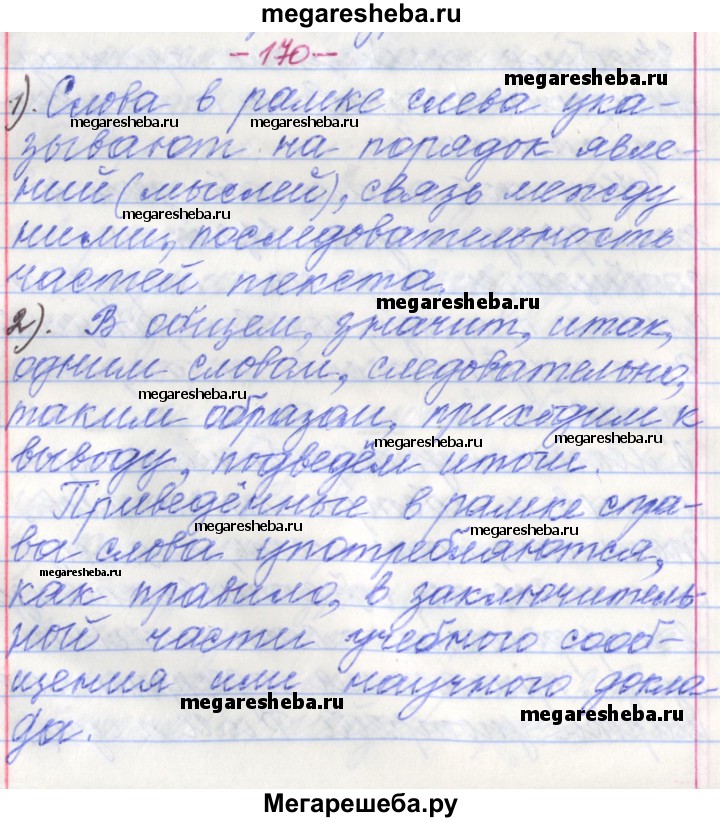 megaresheba.ru
- 170 -
megaresheba.ru
1). Слова в рамке слева ука-
megaresheba.ru megaresheba.ru
зывают на порядок явле-
ний (мыслей), связь между
megaresheba.ru
ними, последовательность
частей текста.
megaresheba.ru
2). В общем, значит, итак,
одним словом, следовательно,
megaresheba.ru
таким образом, приходим к
megaresheba.ru megaresheba.ru
выводу, подведём итоги.
Приведённые в рамке спра-
megaresheba.ru megaresheba.ru
ва слова употребляются,
megaresheba.ru
как правило, в заключитель-
ной части учебного сооб-
щения или научного докла-
megaresheba.ru megaresheba.ru
да.
Мегарешеба.ру